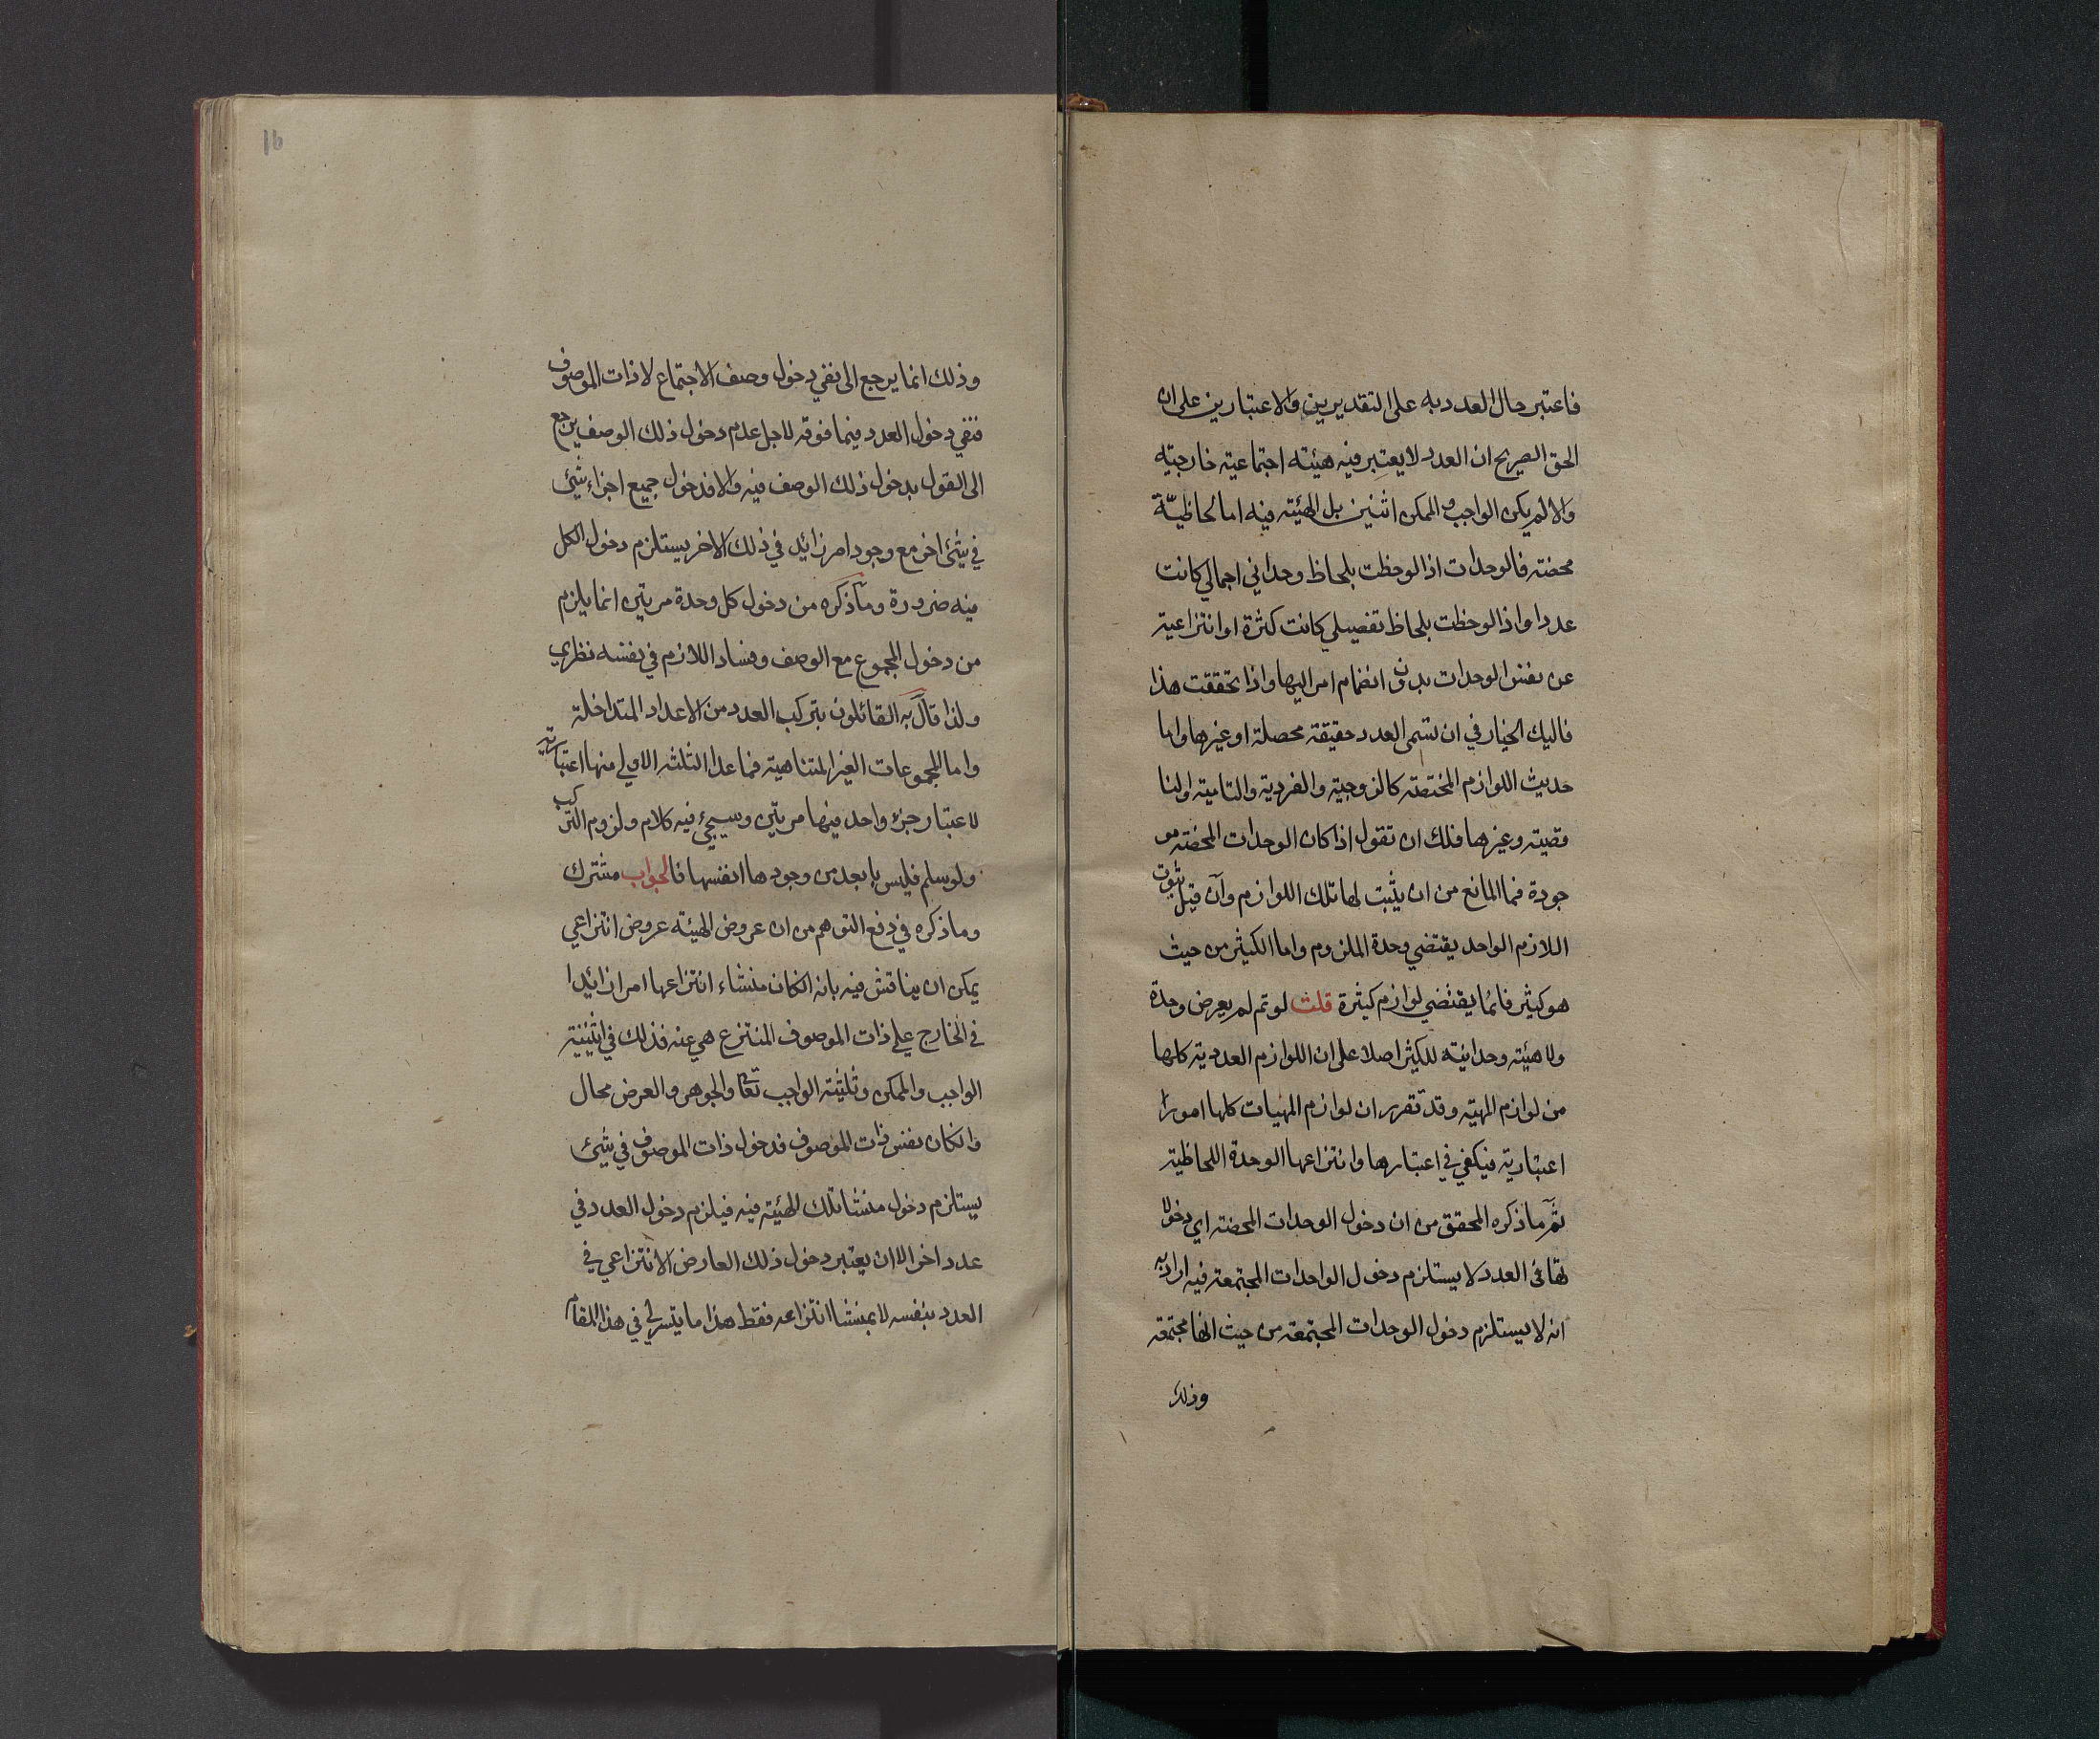 فاعتبر حال العدد به على التقديرين والاعتبارين على ان
الحق الصريح ان العدد لا يعتبر فيه هيئته اجتماعية خارجية
والا لم يكن الواجب والممكن اثنين بل الهيئة فيه اما لحاظيّة
محضة فالوحدات اذا لوحظت بلحاظ وحداني اجمالي كانت
عددا واذا لوحظت بلحاظ تفصيلي كانت كثرة او انتزاعية
عن نفس الوحدات بدون انضمام امر اليها واذا تحققت هذا
فاليك الخيار في ان تسمى العدد حقيقة محصلة او غيرها واما
حديث اللوازم المختصة كالزوجية والفردية والتامية اوالنا
قصية وغيرها فلك ان تقول اذا كان الوحدات المحضة مو
جودة فما المانع من ان يثبت لها تلك اللوازم وان قيل ثبوت
اللازم الواحد يقتضي وحدة الملزوم واما الكثير من حيث
هو كثير فانما يقتضي لوازم كثيرة قلت لو تم لم يعرض وحدة
ولا هيئة وحدانية للكثير اصلا على ان اللوازم العددية كلها
من لوازم المهية وقد تقرر ان لوازم المهيات كلها امورا
اعتبارية فيكفي في اعتبارها وانتزاعها الوحدة اللحاظية
ثم ما ذكره المحقق من ان دخول الوحدات المحضة اي دخولا
في العدد لا يستلزم دخول الواحدات المجتمعة فيه اراد به
انه لا يستلزم دخول الوحدات المجتمعة من حيث انها مجتمعة
وذلك
16
وذلك انما يرجع الى نفي دخول وصف الاجتماع لا ذات الموصوف
فنفي دخول العدد فيما فوقه لاجل عدم دخول ذلك الوصف يرجع
الى القول بدخول ذلك الوصف فيه والا فدخول جميع اجزاء شئ
في شئ اخر مع وجود امر زائد في ذلك الاخر يستلزم دخول الكل
فيه ضرورة وما ذكره من دخول كل وحدة مرتين انما يلزم
من دخول المجموع مع الوصف وفساد اللازم في نفسه نظري
ولذا قال به القائلون بتركب العدد من الاعداد المتداخلة
واما المجموعات الغير المتناهية فما عدا الثلثة الاولى منها اعتبارية
لاعتبار جزء واحد فيها مرتين وسيجئ فيه كلام ولزوم التركب
ولو سلم فليس بابعد من وجودها انفسها فالجواب مشترك
وما ذكره في دفع التوهم من ان عروض الهيئة عروض انتزاعي
يمكن ان يناقش فيه بانه الكان منشاء انتزاعها امرا زائدا
في الخارج على ذات الموصوف المنتزع هي عنه فذلك في اثنينية
الواجب والممكن وثلثية الواجب تعا والجوهر والعرض محال
والكان نفس ذات الموصوف فدخول ذات الموصوف في شئ
يستلزم دخول منشا تلك الهيئة فيه فيلزم دخول العدد في
عدد اخر الا ان يعتبر دخول ذلك العارض الانتزاعي في
العدد بنفسه لا بمنشا انتزاعه فقط هذا ما يتسر لي في هذا المقام